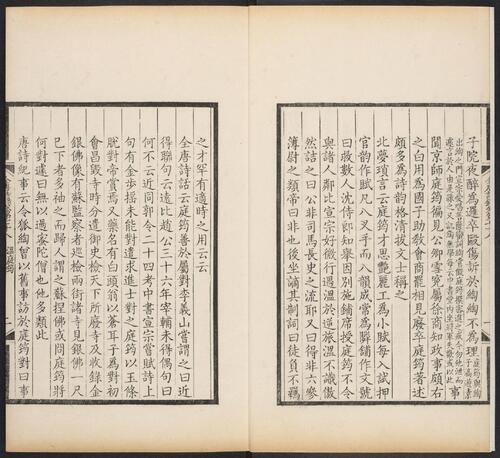 子院夜醉為邏卒毆傷訴於綯綯不為理
庭筠與綯
子滈遊素
出綯之門宣宗愛唱菩薩蠻綯假庭筠撰密進之戒令勿泄而
遽言於人由是疏之
聞京師庭筠徧見公卿雪冤屬徐商知政事頗右
之白用為國子助教會商罷相見廢卒庭筠著述
頗多為詩韻格清拔文士稱之
北夢瑣言云庭筠才思艷麗工為小賦每入試押
官韻作賦凡八叉手而八韻成常為隣鋪作文號
曰救數人沈侍郎知舉因别施鋪席授庭筠不令
與諸人鄰比宣宗好微行遇溫於逆旅溫不識傲
然詰之曰公非司馬長史之流耶又曰得非六參
簿尉之類帝曰非也後坐謫其制詞曰徒負不羈
之才罕有適時之用云云
全唐詩話云庭筠善於屬對李義山嘗謂之曰近
得聯句云遠比趙公三十六年宰輔未得偶句曰
何不云近同郭令二十四考中書宣宗嘗賦詩上
句有金歩摇未能對遣求進士對之庭筠以玉條
脫對帝賞焉又藥名有白頭翁以蒼耳子為對初
會昌毀寺時分遣御史檢天下所廢寺及收錄金
銀佛像有蘇監察者巡檢兩街諸寺見銀佛一尺
已下者多袖之而歸人謂之蘇捏佛或問庭筠將
何對遽曰無以過宻陀僧也他多類此
唐詩紀事云令狐綯曾以舊事訪於庭筠對曰事
溫庭筠